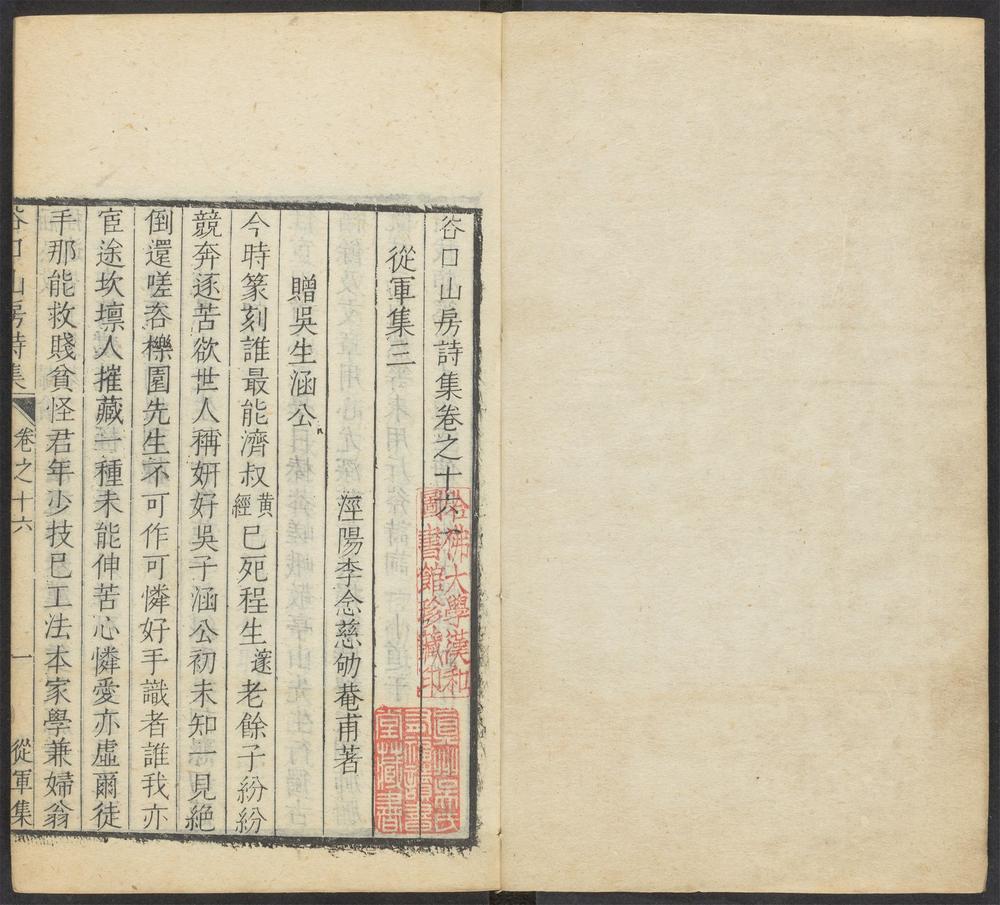 谷口山房詩集卷之十六
從軍集三
涇陽李念慈劬菴甫著
贈吳生涵公
今時篆刻誰最能濟叔黃經已死程生邃老餘子紛紛
競奔逐苦欲世人稱妍好吳子涵公初未知一見絕
倒還嗟吝櫟園先生不可作可憐好手識者誰我亦
宦途坎壈人摧藏一種未能伸苦心憐愛亦虛爾徒
手那能救賤貧怪君年少技已工法本家學兼婦翁
谷口山房詩集
卷之十六
一
從軍集
哈佛大學漢和
圖書館珍藏印